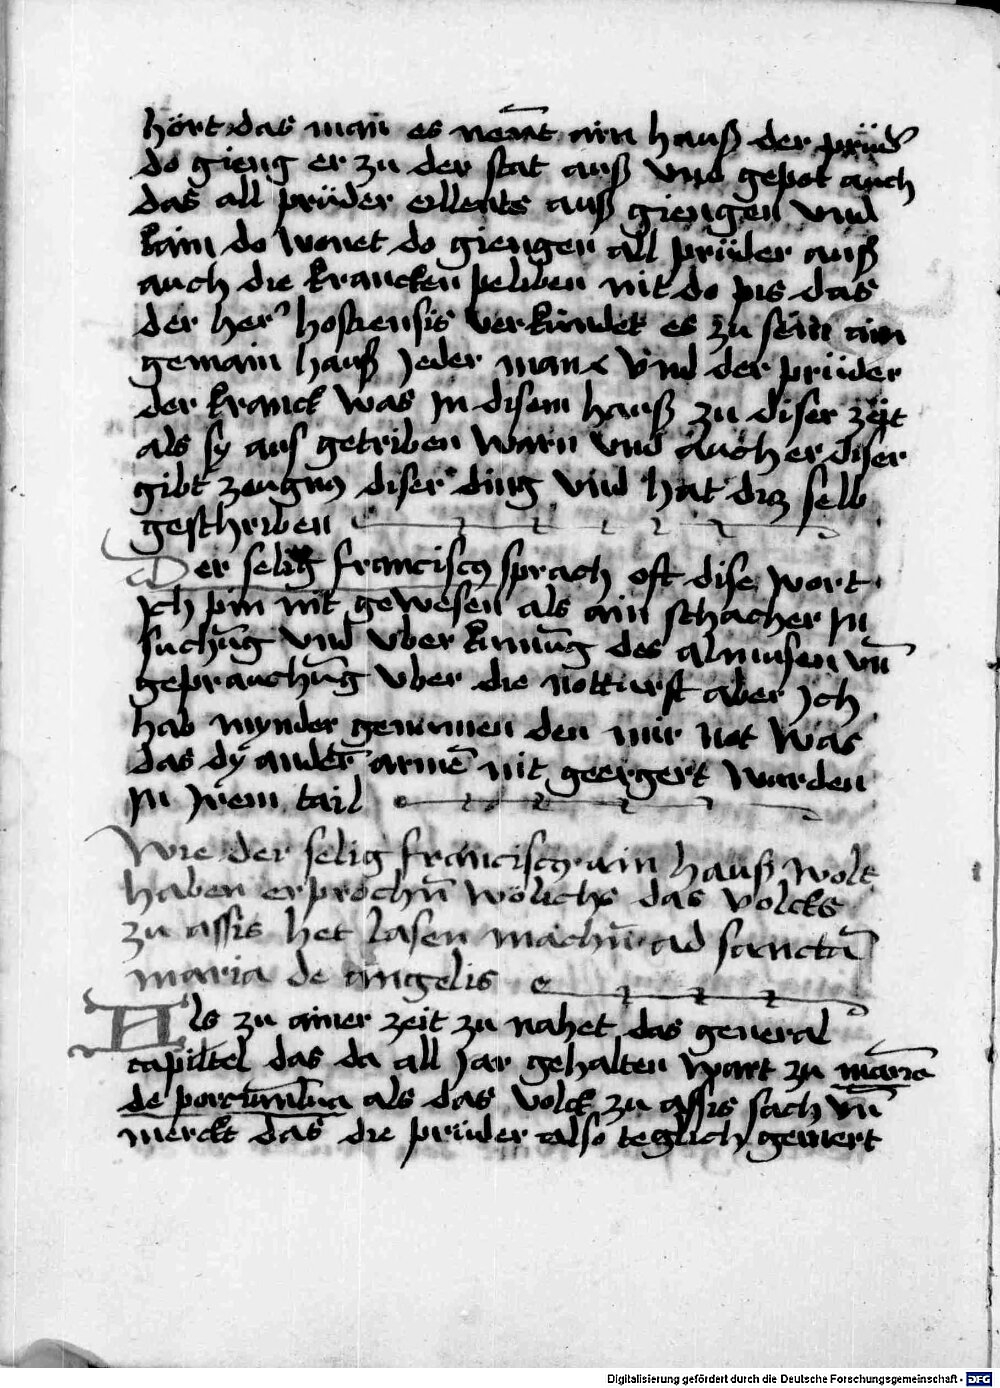 hört das man es nent ain hauß der prüd
do gieng er zu der stat auß vnd gepot auch
das all prüder ellents auß giengen vnd
kain do wonet do giengen all prüder auß
auch die krancken peliben nit do pis das
der her hostiensis verkündet es zu sein ain
gemain hauß jeder man vnd der prüder
der kranck was jn disem hauß zu diser zeit
als sy aus getriben warn vnd auch er diser
gibt zeugnꝰ diser ding vnd hat diz selb
geschriben
Der selig franciscꝰ sprach oft dise wort
jch pin nit gewesen als ain schacher jn
suchūg vnd vber kumūg des almusen vn̄
geprauchūg vber die notturft aber jch
hab mynder genumen den mir not was
das dy ander armē nit geergert wurden
jn jrem tail
Wie der selig franciscꝰ ain hauß wolt
haben erprochn̄ wölichs das volcks
zu assis het lasen machn̄ ad sanctā
maria de angelis
Als zu ainer zeit zu nahet das general
capittel das da all jar gehalten wart zu maria
de portiuncula als das volck zu assis sach vn̄
merckt das die prüder also teglich gemert